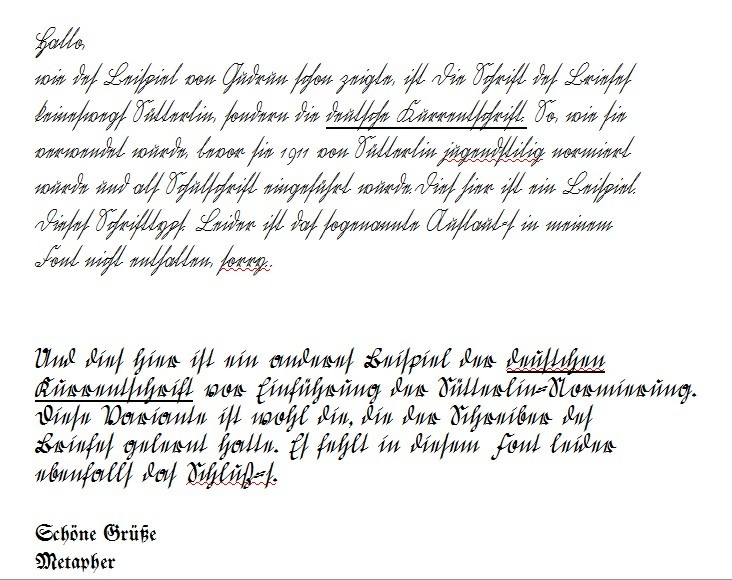 Hallo,
wie des Beispiel von Gudrun schon zeigte, ist die Schrift des Briefes
keineswegs Sütterlin, sondern die deutsche Kurrentschrift. So, wie sie
verwendet wurde, bevor sie 1911 von Sütterlin jugendstilig normiert
wurde und als Schulschrift eingeführt wurde. Dies hier ist ein Beispiel.
Dieses Schrifttyps. Leider ist das sogenannte Auslaut-s in meinem
Font nicht enthalten, sorry..
Und dies hier ist ein anderes Beispiel der deutschen
Kurrentschrift vor Einführung der Sütterlin-Normierung.
Diese Variante ist wohl die, die der Schreiber des
Briefes gelernt hatte. Es fehlt in diesem Font leider
ebenfalls das Schluß-s.
Schöne Grüße
Metapher